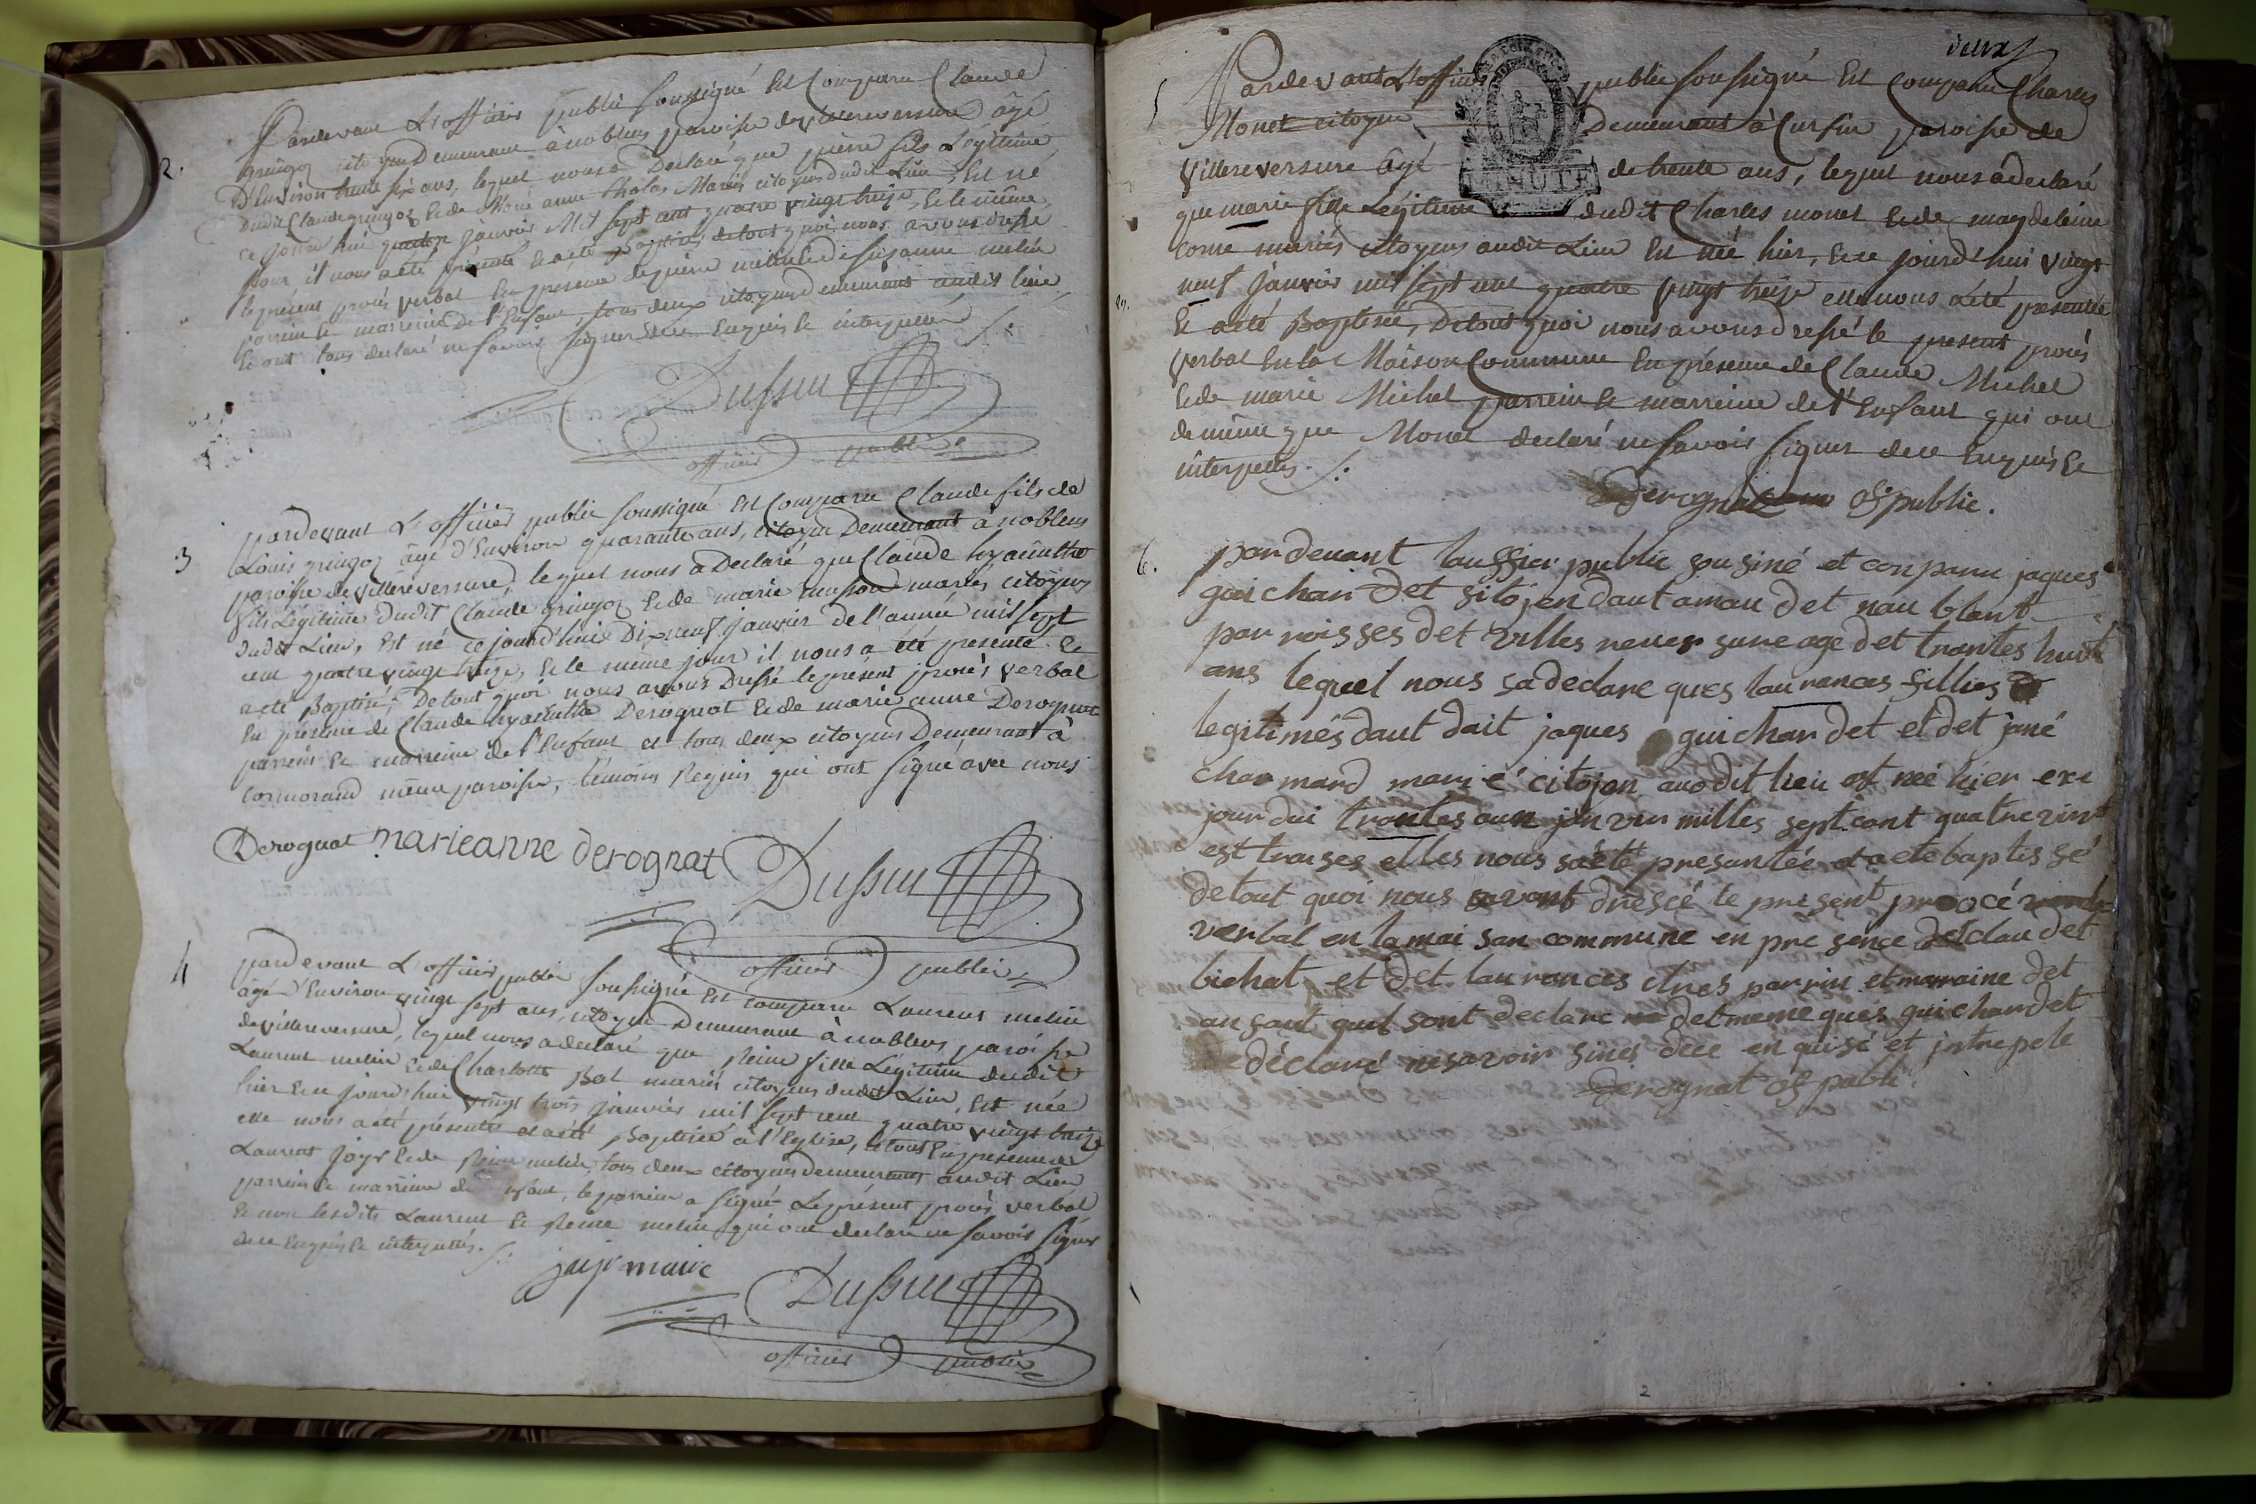 2.
Pardevant L'officier public soussigné Est Comparu Claude
gringoz citoyen Demeurant à noblens paroisse de villereversure âgé
D'Environ trente six ans, lequel nous a Declaré que pierre fils Légitime
Dudit Claude gringoz Et de Marie anne Mariés citoyens dudit Lieu Est né
ce jourd'hui janvier Mil sept cent quatre vingt treize, Et le même
jour il nous a été présenté Et a été Baptisé de tout quoi nous avons dressé
le présent procès verbal En présence de pierre melin Et de suzanne melin
parrein Et marreine de l'Enfant, tous deux citoyens Demeurant audit lieu
Et ont tous declaré ne savoir signer de ce Enquis Et interpellés
Dussur
officier public
3
pardevant L'officier public soussigné Est Comparu Claude fils de
Louis gringoz âgé d'Environ quarante ans, citoyen Demeurant à noblens
paroisse de villereversure, lequel nous a Declaré que Claude hyacinthe
fils Légitime dudit Claude gringoz Et de marie mariés citoyens
dudit Lieu, Est né ce jourd'hui Dix neuf janvier de l'année mil sept
cent quatre vingt treize, Et le même jour il nous a été présenté Et
a été Baptisé, De tout quoi nous avons Dressé le présent procès verbal
En présence de Claude hyacinthe Derognat Et de marie anne Derognat
parrein Et marreine de l'Enfant et tous deux citoyens Demeurant à
cormorand même paroisse, témoins Requis qui ont signé avec nous
Derognat marieanne derognat Dussur
officier public
4
pardevant L'officier public soussigné Est comparu Laurent melin
agé d'Environ vingt sept ans, citoyen Demeurant à noblens paroisse
de villereversure, lequel nous a declaré que Reine fille Légitime dudit
Laurent melin Et de Charlotte Bol mariés citoyens dudit Lieu, Est née
hier Et ce jourd'hui vingt trois janvier mil sept cent quatre vingt treize
elle nous a été présentée et a été Baptisée à l'Eglise, le tout En présence de
Laurent joyr Et de Reine melin, tous deux citoyens demeurants audit Lieu
parrein Et marreine de Enfant, le parrein a signé Le présent procès verbal
Et non lesdits Laurent Et Reine melin qui ont declaré ne savoir signer
de ce Enquis Et interpellés.
joyr maire
Dussur
officier public
deux
5
Pardevant L'officier public soussigné Est Comparu Charles
Monet citoyen Demeurant à Cursin paroisse de
villereversure âgé de trente ans, lequel nous a declaré
que marie fille Légitime dudit Charles monet Et de magdeleine
Corne mariés citoyens audit Lieu Est née hier, Et ce jourd'hui vingt
neuf janvier mil sept cent quatre vingt treize elle nous a été présentée
29.
Et a été Baptisée, De tout quoi nous avons dressé le présent procès
verbal En la Maison Commune En présence de Claude Michel
Et de marie Michel parrein Et marreine de l'Enfant qui ont
de même que Monet declaré ne savoir signer de ce Enquis Et
interpellés.
derognat of public.
6.
par devant laussier public sousiné et conparu jaques
guichardet sitojen daut amau det nau blant
parroisses det villes rever sure age det trantes huit
ans lequel nous sa declare ques laurances fillies
legitimés daut dait jaques guichardet et det jané
charmard marié citojen audit lieu est neé hier exe
jour dui trantes aun janvier milles sept cant quatre vint
est traises elles nous sa èté presantée et a ete baptissé
de tout quoi nous avont dresée le present procé
verbal en la mai son commune en pre sence det claudet
bichat et det laurances parrin et marraine det
an sant quil sont declare det meme ques guichardet
declaré nesavoir sines dece en quisé et jntrepele
derognat of publi
2